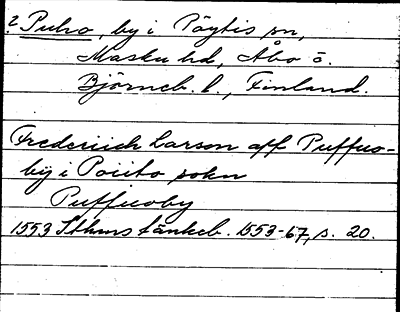 ? Puho, by i Pöytis sn,
Masku hd, Åbo ö.
Björneb. l., Finland.
Frederiich Larson aff Puffuo-
bÿ i Poiito sokn
Puffuoby
1553 Sthms tänkeb. 1553-67, s. 20.